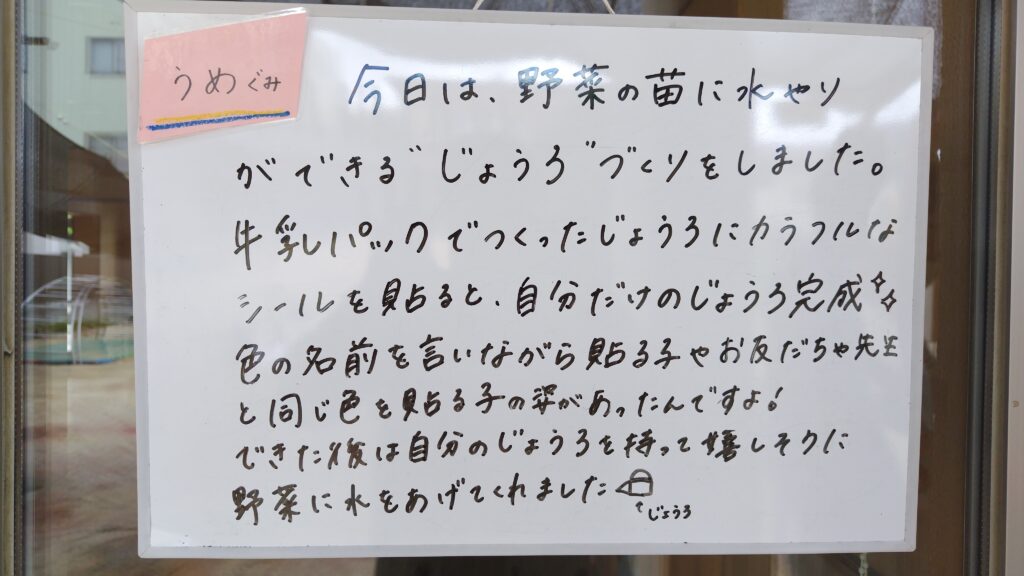 うめぐみ
今日は、野菜の苗に水やり
ができる"じょうろ"づくりをしました。
牛乳パックでつくったじょうろにカラフルな
シールを貼ると、自分だけのじょうろ完成
色の名前を言いながら貼る子やお友だちや先生
と同じ色を貼る子の姿があったんですよ!
できた後は自分のじょうろを持って嬉しそうに
野菜に水をあげてくれました
↑じょうろ